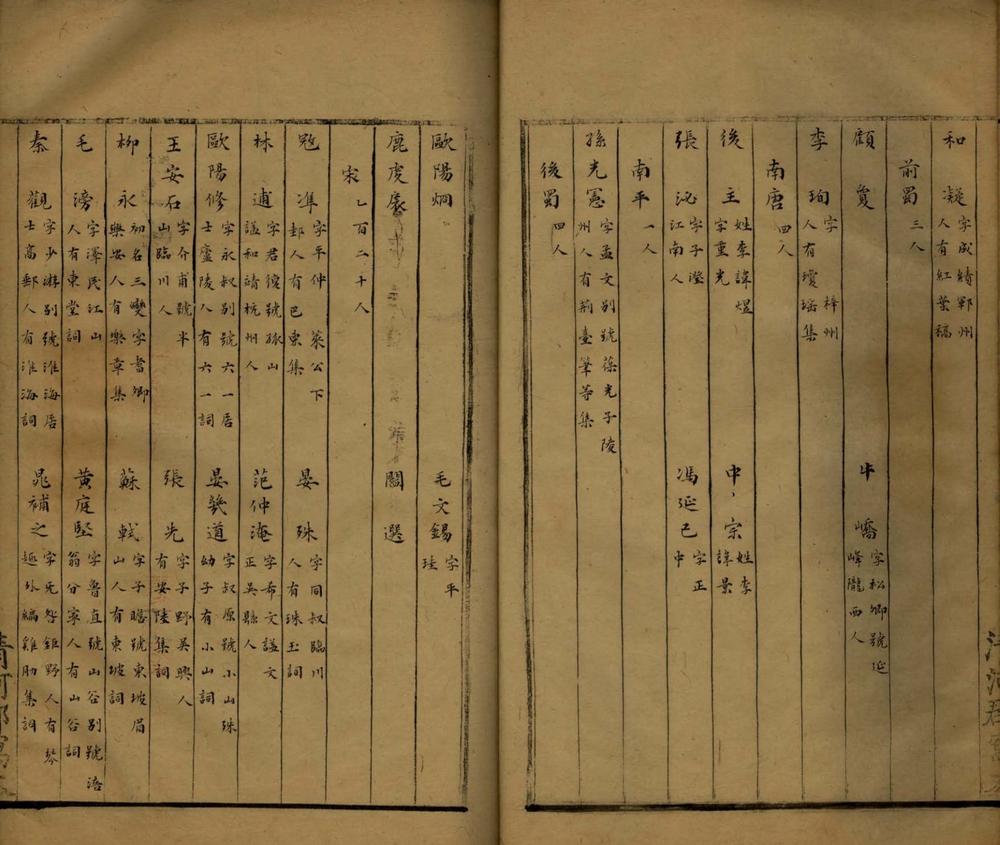 和凝字成績鄆州人有紅葉稿
前蜀三人
顧夐
牛嶠字松卿號延峰隴西人
李珣字 梓州人有瓊瑶集
南唐四人
後主姓李諱煜字重光
中宗姓李諱景
張泌字子澄江南人
馮延巳字正中
南平一人
孫光憲字孟文別號葆光子陵州人有荆臺筆等集
後蜀四人
歐陽烱
毛文錫字平珪
鹿虔扆
閻選
宋乙百二十人
寇準字平仲 萊公下邽人有巴東集
晏殊字同叔臨川人有珠玉詞
林逋字君復號孤山謚和靖杭州人
范仲淹字希文謚文正吳縣人
歐陽修字永叔別號六一居士廬陵人有六一詞
晏幾道字叔原號小山殊幼子有小山詞
王安石字介甫號半山臨川人
張先字子野吳興人有安陵集詞
柳永初名三變字耆卿樂安人有樂章集
蘇軾字子瞻號東坡眉山人有東坡詞
毛滂字澤民江山人有東堂詞
黄庭堅字魯直號山谷別號涪翁分寧人有山谷詞
秦觀字少游別號淮海居士高郵人有淮海詞
晁補之字无咎鉅野人有琴趣外編雞肋集詞